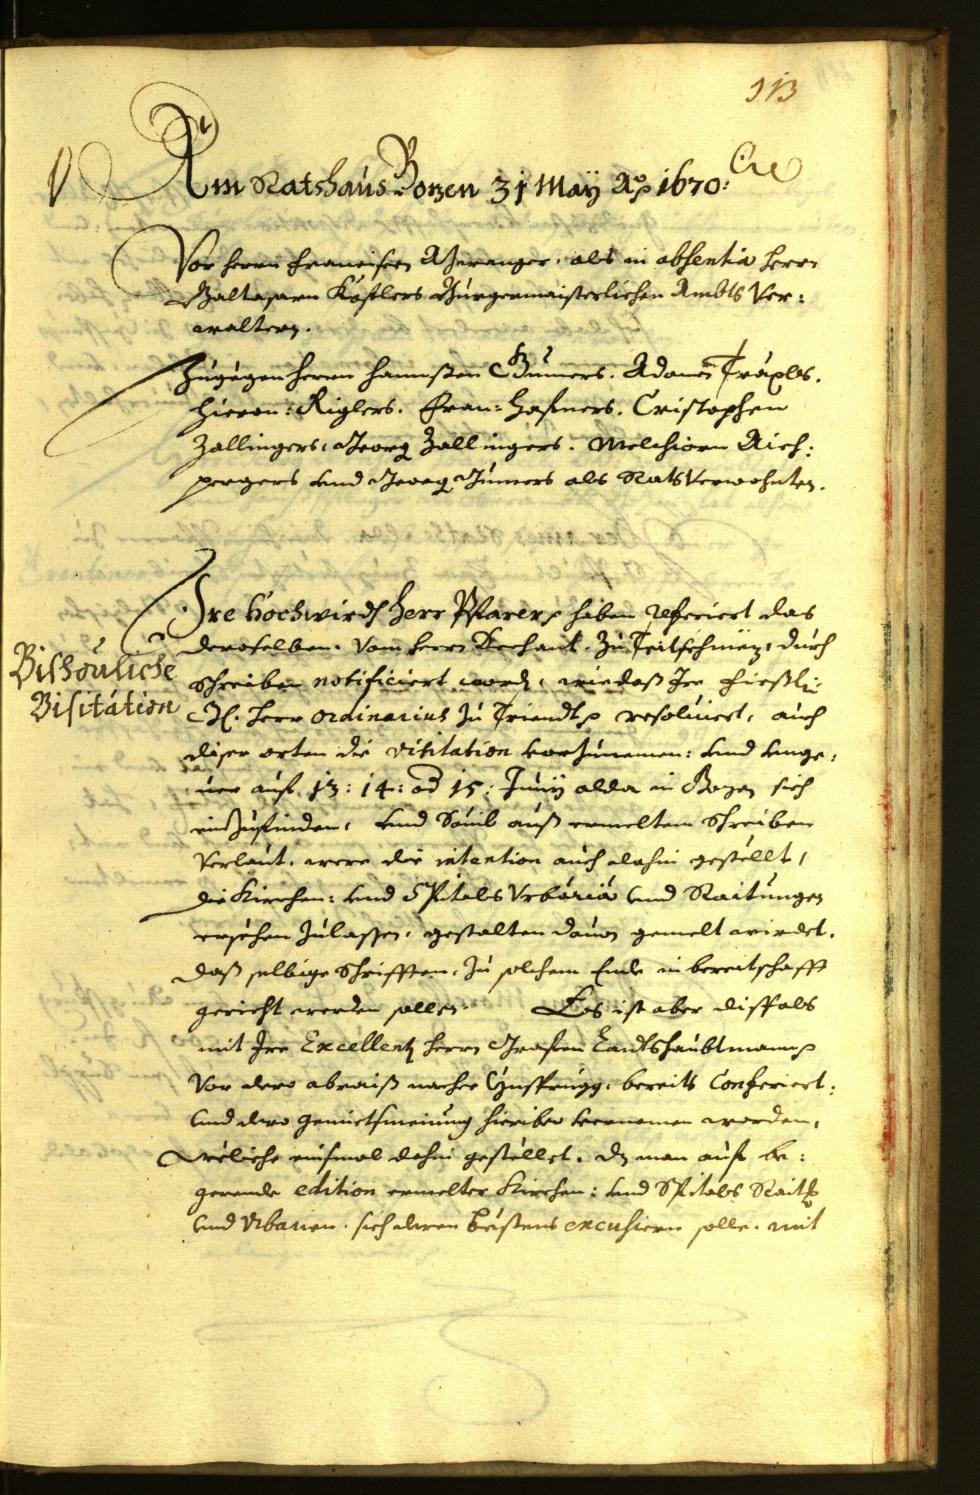 113
Am Rathaus Bozen 31 Maÿ Ao 1670:
Vor herrn Francischen als in absentia herrn
Baltasarn Kößlers Burgermaisterlichen Ambts Ver:
waltern.
Zugegen herrn Hannßen Gumers. Adamen Träxls.
Hieron: Riglers. Fran: Haßners. Cristophen
Zallingers, Georg Zallingers. Melchiorn Aich:
pergers und Georg Gumers als Rats Verwohnten.
Ire Hochwird herr Pfarer haben referiert das
deroselben. Vom herrn Dechant. zu durch
Bischöuliche
Schreiben notificiert word, wiedaß Ire Fürstl:
Visitation
Gl. herr ordinarius zu Triendt resoluiert, auch
diser orten die visitation vorzunemen: und unge:
uer auf 13: 14: od 15: Junij alda in Bozen sich
einzufinden, und Souil auß ermeltem Schreiben
Verlaut, were die intention auch dahin gestellt,
die Kirchen: und Spitals Vrbäria und Raitungen
ersehen zulassen, gestalten dauon gemelt wirdet,
daß selbige Schrifften, zu solchem Ende in bereitschafft
gericht werden sollen. Eos ist aber dißfals
mit Ire Excellentz herrn Grafen Landtshaubtmann
Vor dero abraiß nacher Ynsprugg, bereits Conferiert:
und dero gemietsmeinung hieriber vernomen worden,
Weliche einsmal dahin gestöllet. dz man auf be:
gerende edition ermelter Kirchen: und Spitals Rait
und Vrbarien. sich derenBöstens excusiern solle. mit